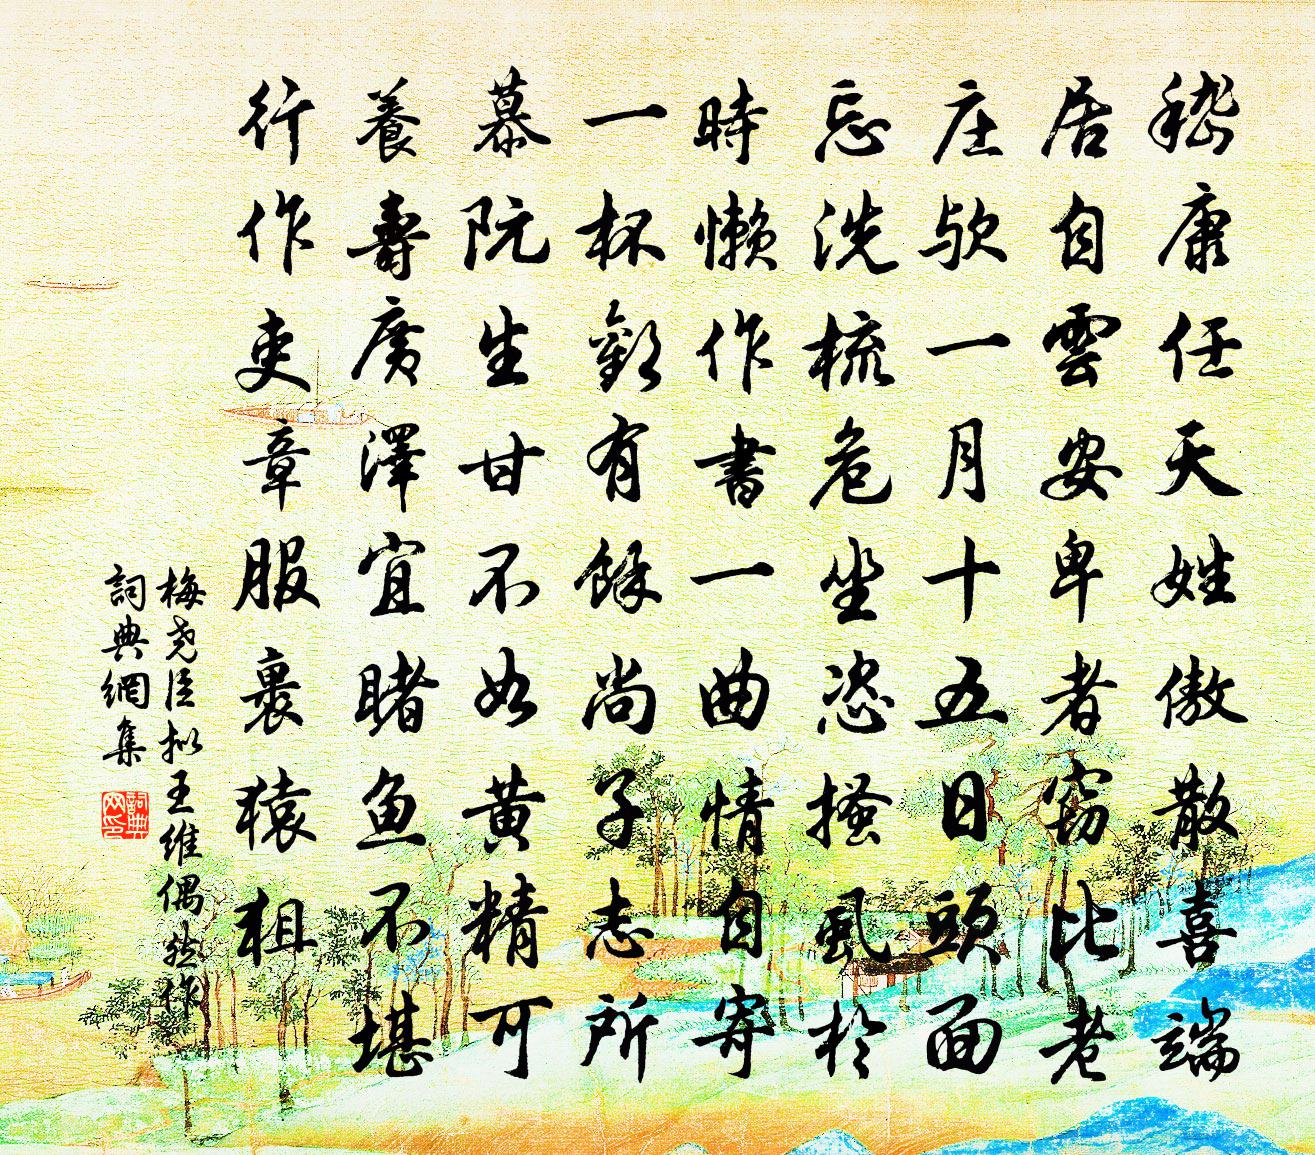 嵇康任天姓傲散喜端
居自雲安卑者窃比老
庄欤一月十五日頭面
忘洗梳危坐恣搔虱於
時懒作書一曲情自寄
一杯歡有餘尚子志所
慕阮生甘不如黄精可
養壽廣澤宜睹鱼不堪
行作吏章服裹猿狙
梅尧臣拟王維偶然作
詞典網集
詞典网印